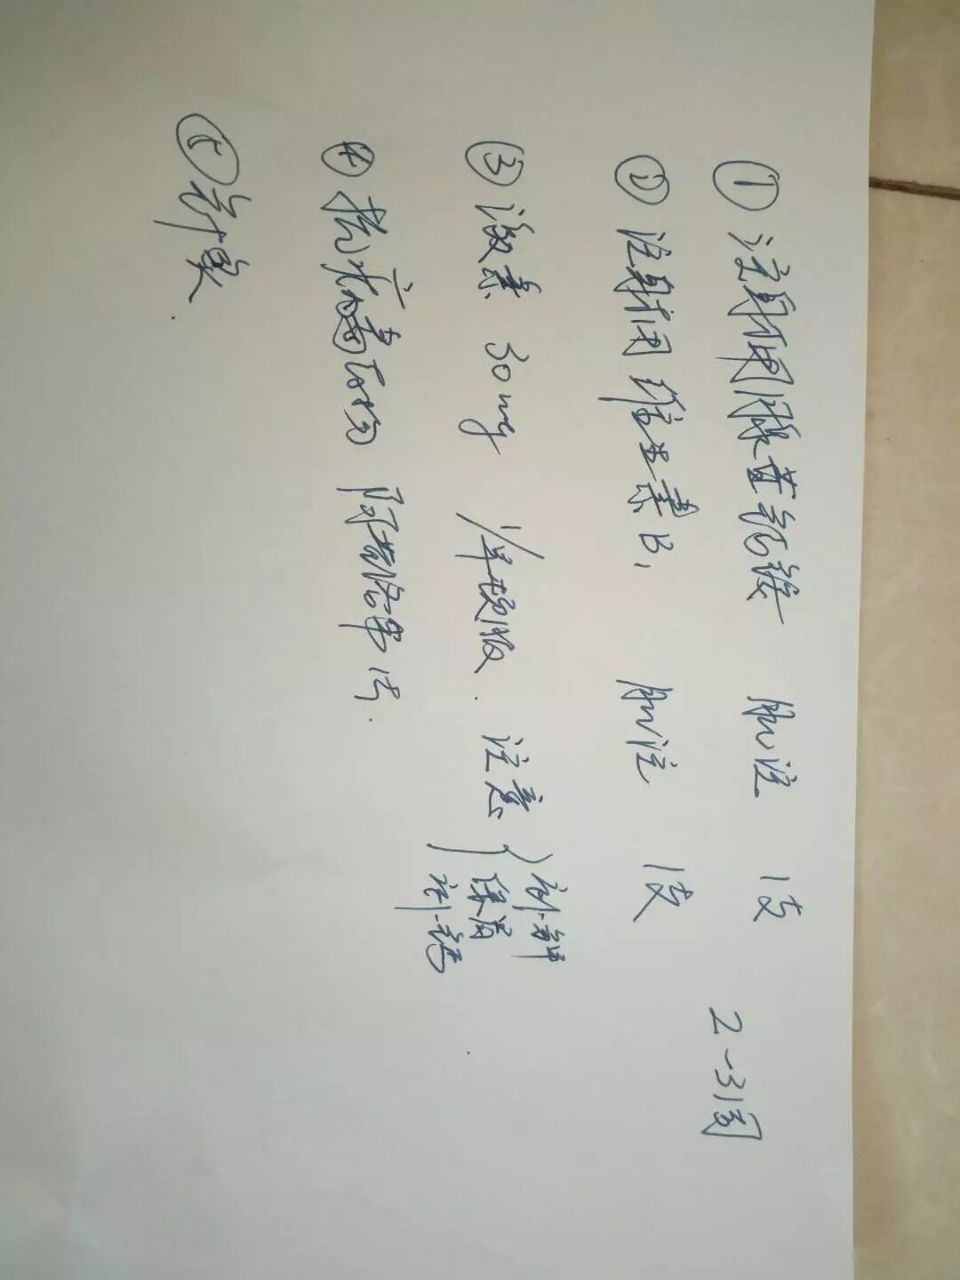 ① 注射用腺苷钴胺 肌注 1支
② 注射用维生素B1 肌注 1支
2-3周
③ 激素 30mg 1/早顿服. 注意 { 补钾
保胃
补钙
④ 抗病毒 阿昔洛韦
⑤ 针灸.